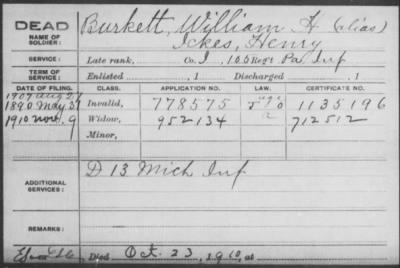 DEAD
NAME OF SOLDIER:
Burkett, William H (alias)
Ickes, Henry
SERVICE:
Late rank, Co. I, 105 Regt Pa. Inf
TERM OF SERVICE:
Enlisted , 1 Discharged , 1
DATE OF FILING. CLASS. APPLICATION NO. LAW. CERTIFICATE NO.
1907 Aug 27
1890 May 31 Invalid, 778575 1135196
1910 Nov. 9 Widow, 952134 712512
Minor,
ADDITIONAL SERVICES:
D 13 Mich Inf
REMARKS:
Died Oct. 23, 1910, at